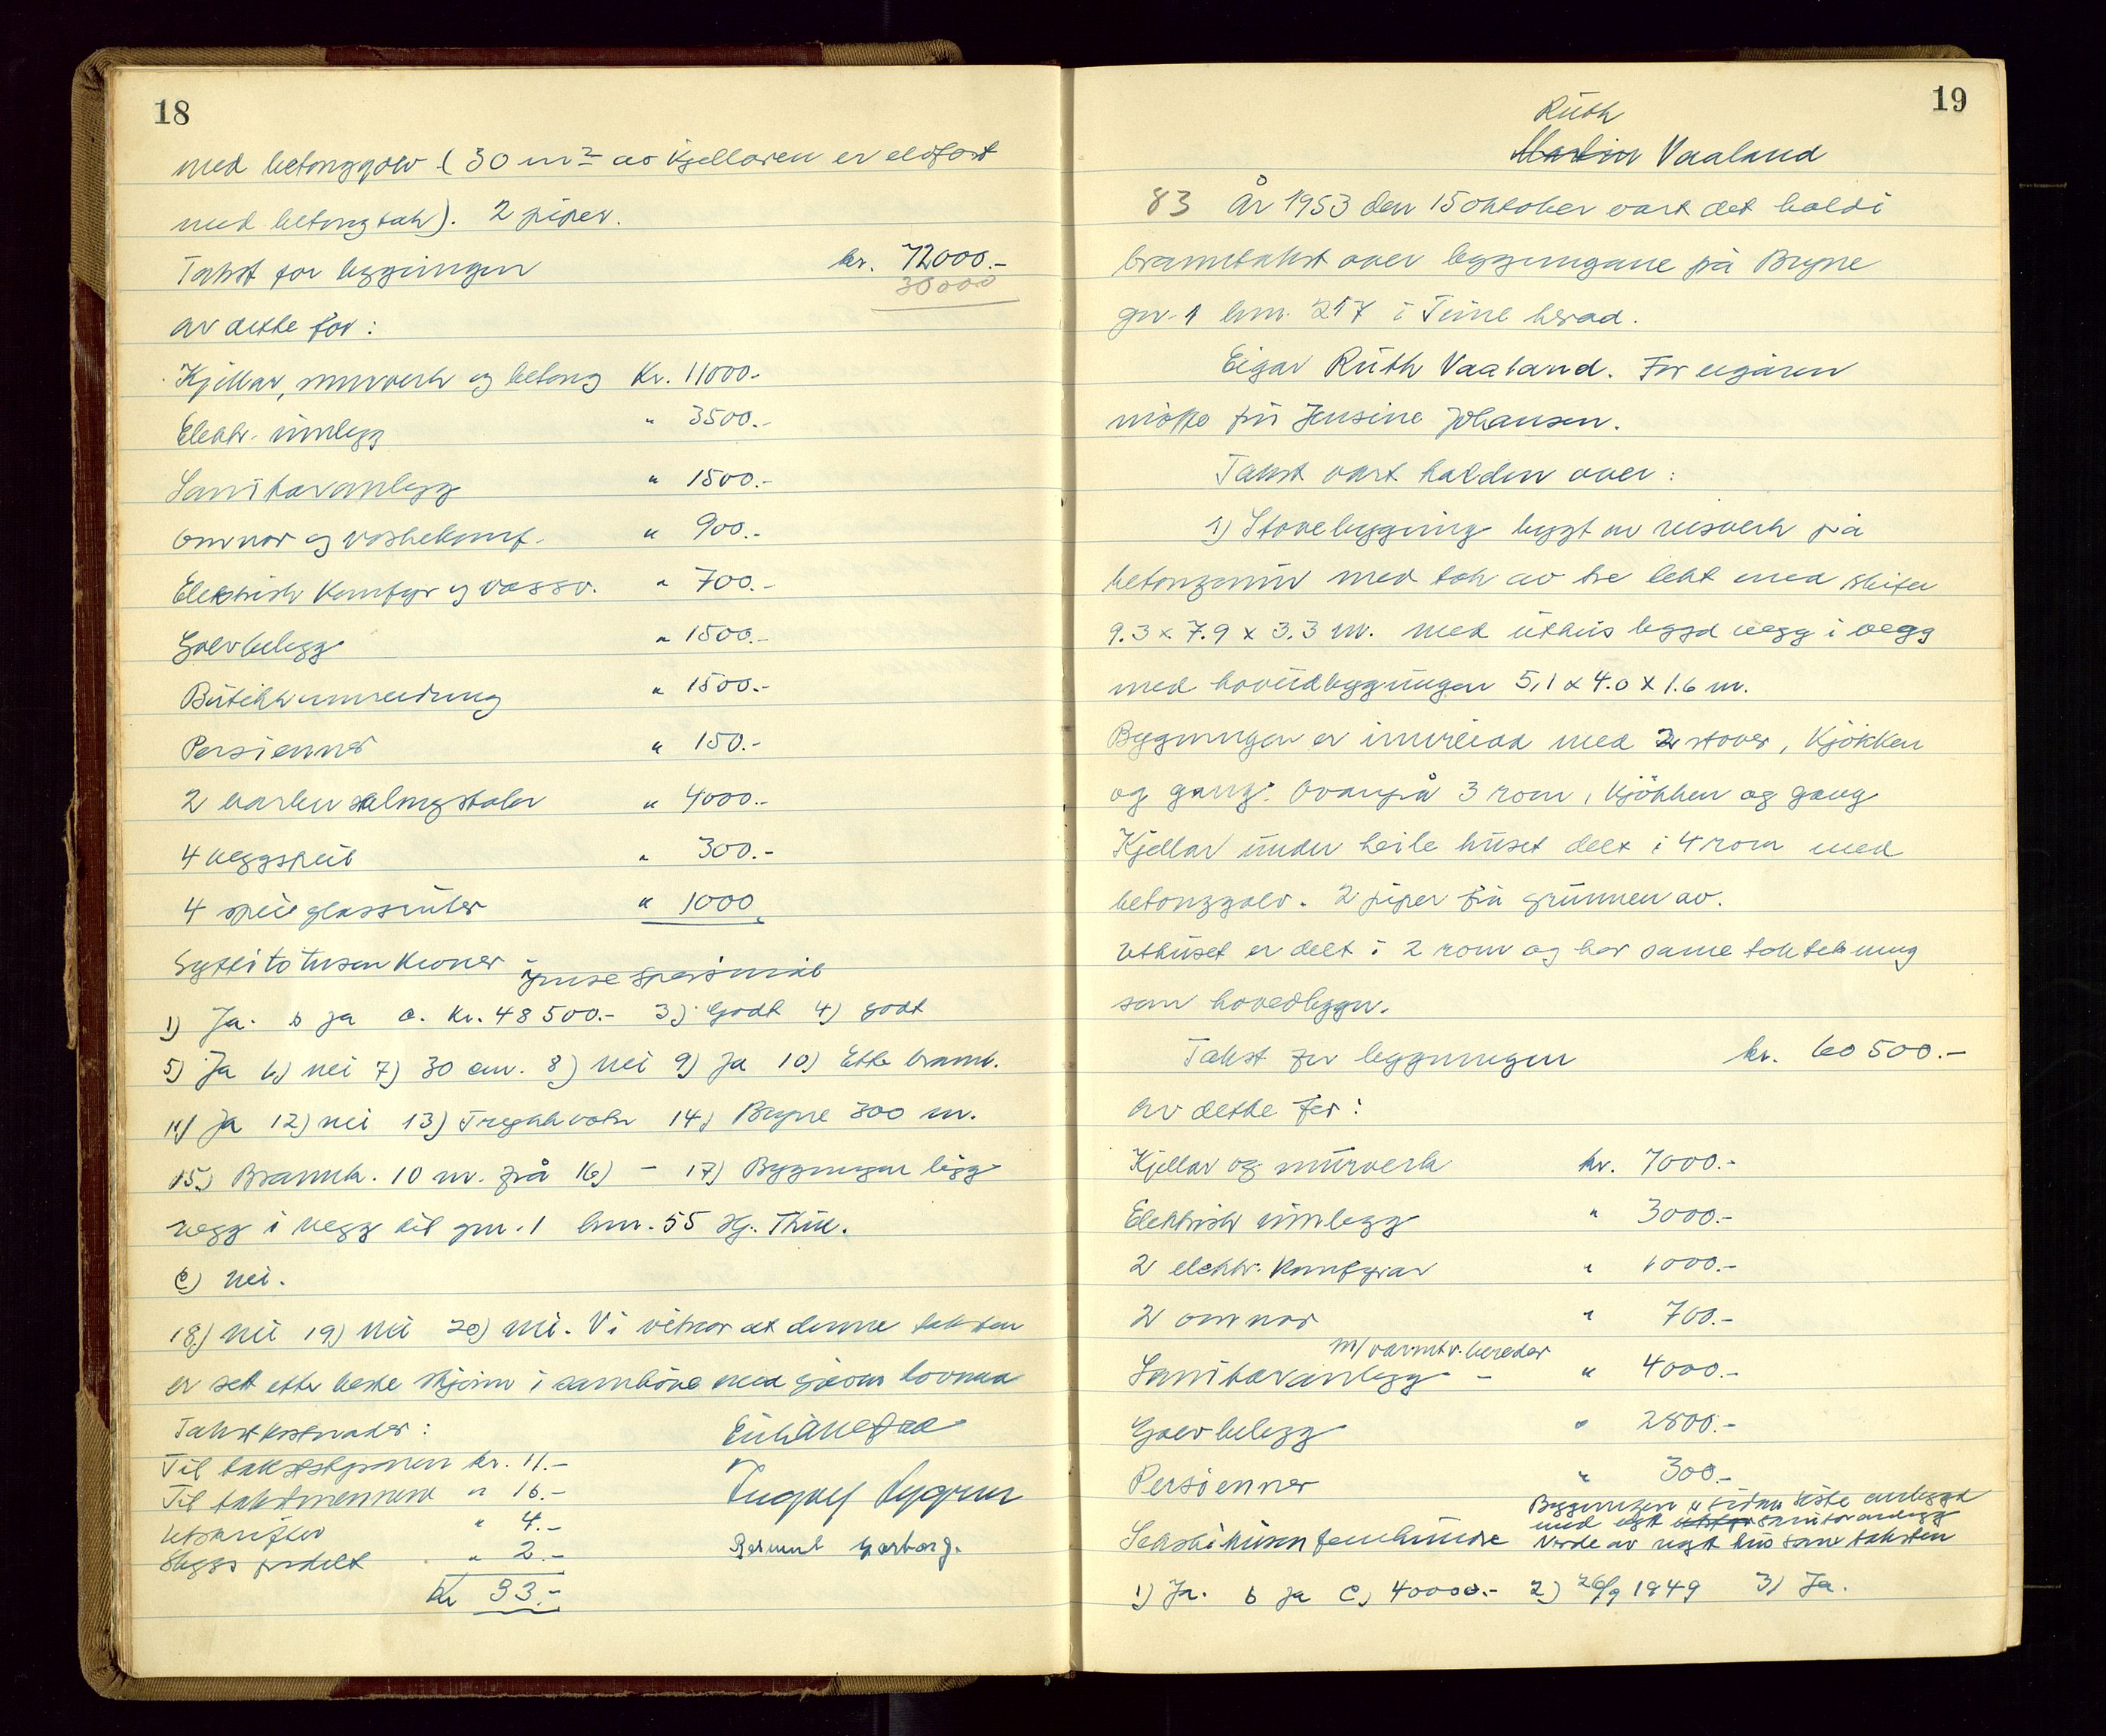 18
med betonggolv (30 m² av kjellaren er eldfast
med betongtak). 2 piper.
Takst for bygningen kr. 72000.-
30000
av dette for:
Kjellar, murverk og betong Kr. 11000.-
Elektr. innlegg " 3500.-
Sanitæranlegg " 1500.-
Omnar og vaskekomf. " 900.-
Elektrisk Komfyr og vassv. " 700.-
Golvbelegg " 1500.-
Butikkinnreidning " 1500.-
Persienner " 150.-
2 barber stolar " 4000.-
4 veggspeil " 300.-
4 speilglassruter " 1000
Syttito tusen kroner Ymse spørsmål
1) Ja. b ja c. kr. 48500.- 3) Godt 4) godt
5) Ja 6) nei 7) 30 cm. 8) nei 9) Ja 10) Ette brannh.
11) Ja 12) nei 13) Trykkvatn 14) Bryne 300 m.
15) Brannk. 10 m. frå 16) - 17) Bygningen ligg
vegg i vegg til gnr. 1 bnr. 55 Thu.
C) nei.
18) nei 19) nei 20) nei. Vi vitnar at denne taksten
er sett etter beste skjønn i samhøve med gjevne lovnad
Takstkostnader:
Til takstskjønen kr. 11.-
Til takstmennene " 16.-
Utskrifter " 4.-
Skyss fordelt " 2.-
Kr 33.-
Ingolf
Garborg.
19
Ruth
Martin Vaaland
83 År 1953 den 15 oktober vart det haldi
branntakst over bygningane på Bryne
gnr. 1 bnr. 217 i Time herad.
Eigar Ruth Vaaland. For eigaren
møtte frú Jensine Johansen.
Takst vart halden over:
1) Stovebygning bygt av reisverk på
betongmur med tak av tre tekt med skifer
9.3 x 7.9 x 3.3 m. med uthus bygd vegg i vegg
med hovudbygningen 5,1 x 4.0 x 1.6 m.
Bygningen er innreidd med 2 stover, kjøkken
og gang. Ovanpå 3 rom, kjøkken og gang
Kjellar under heile huset delt i 4 rom med
betonggolv. 2 piper frå grunnen av.
Uthuset er delt i 2 rom og har same taktekning
som hovedbygn.
Takst for bygningen kr. 60500.-
Av dette for:
Kjellar og murverk kr. 7000.-
Elektrisk innlegg " 3000.-
2 elektr. komfyrar " 1000.-
2 omnar " 700.-
m/varmtv.bereder
Sanitæranlegg - " 4000.-
Golvbelegg " 2800.-
Persienner " 300.-
Bygningen er sidan siste
med nytt sanitæranlegg
Sekstitusen femhundre Verde av nytt hus som taksten
1) Ja. b ja C) 40000.- 2) 26/9 1949 3) Ja.